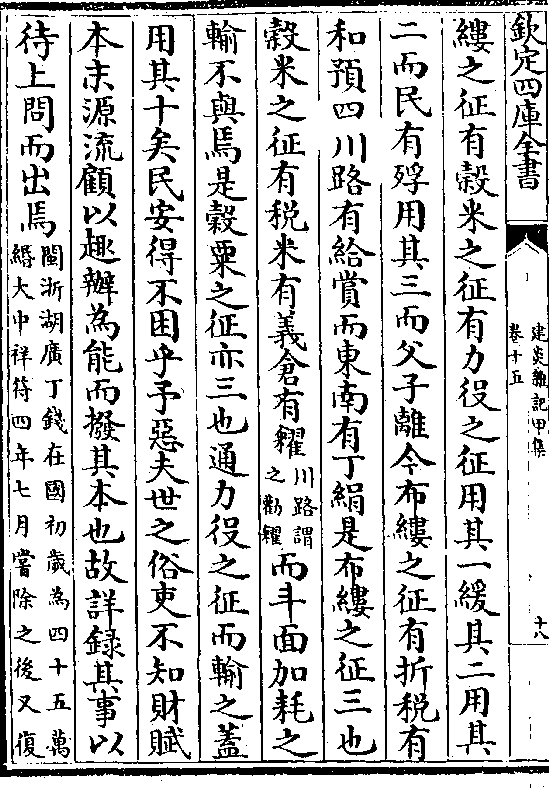 欽定四庫全書
建炎雜記甲集
卷十五
十八
縷之征有穀米之征有力役之征用其一緩其二用其
二而民有殍用其三而父子離今布縷之征有折稅有
和預四川路有給賞而東南有丁絹是布縷之征三也
穀米之征有稅米有義倉有糴川路謂之勸糴而斗面加耗之
輸不與焉是穀粟之征亦三也通力役之征而輸之蓋
用其十矣民安得不困乎予惡夫世之俗吏不知財賦
本末源流顧以趣辦為能而撥其本也故詳録其事以
待上問而出焉閩浙湖廣丁錢在國初歲為四十五萬緡大中祥符四年七月嘗除之後又復